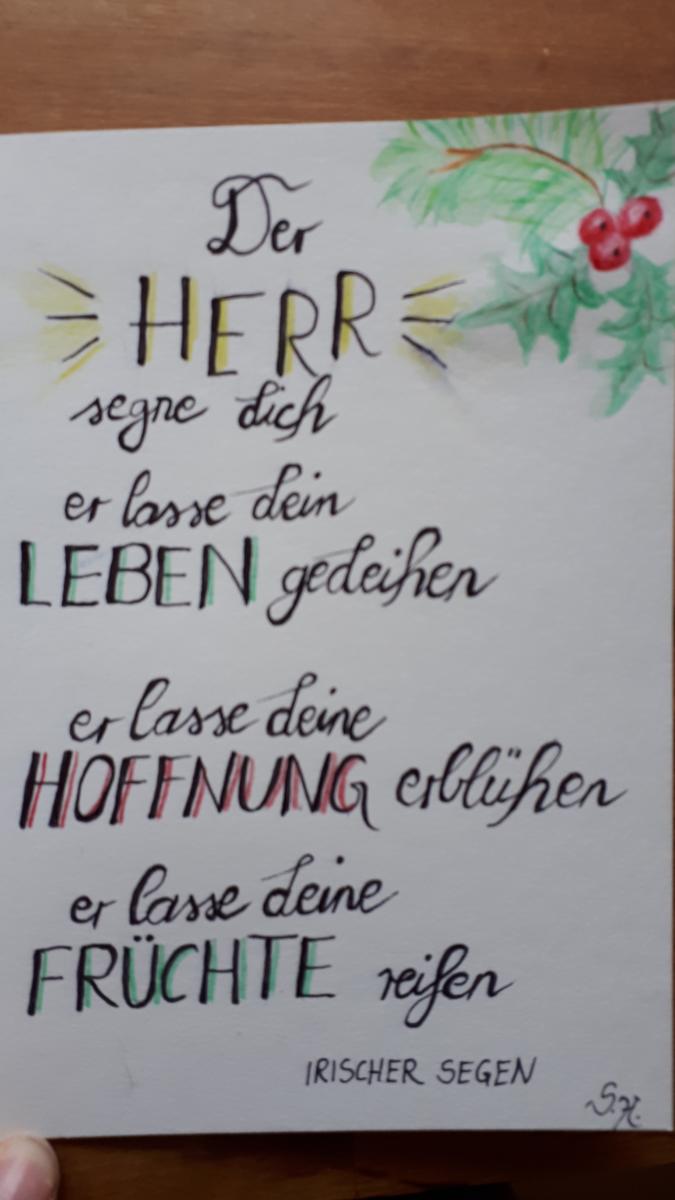 Der
HERR
segne dich
er lasse dein
LEBEN gedeihen
er lasse deine
HOFFNUNG erblühen
er lasse deine
FRÜCHTE reifen
IRISCHER SEGEN
S.H.